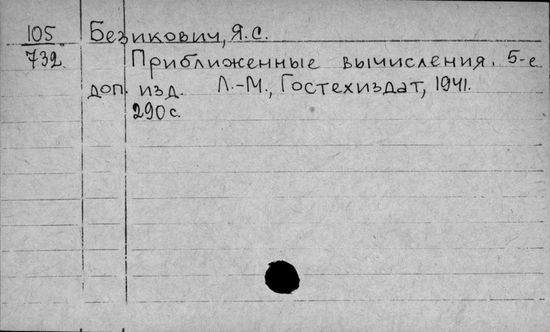 105 Безикович, Я.С.
732 Приближенные вычисления. 5-е
доп. изд. Л.-М., Гостехиздат, 1941.
290 с.